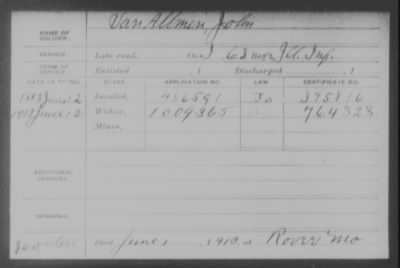 Van Allmen, John
NAME OF SOLDIER:
SERVICE: Late rank, Co. I, 63 Reg't Ill. Inf.
TERM OF SERVICE: Enlisted , 1 Discharged , 1
DATE OF FILING. CLASS. APPLICATION NO. LAW. CERTIFICATE NO.
1883 June 12 Invalid, 486591 375816
1913 June 12 Widow, 1009365 764328
Minor,
ADDITIONAL SERVICES:
REMARKS:
Died June 1913, at Mo